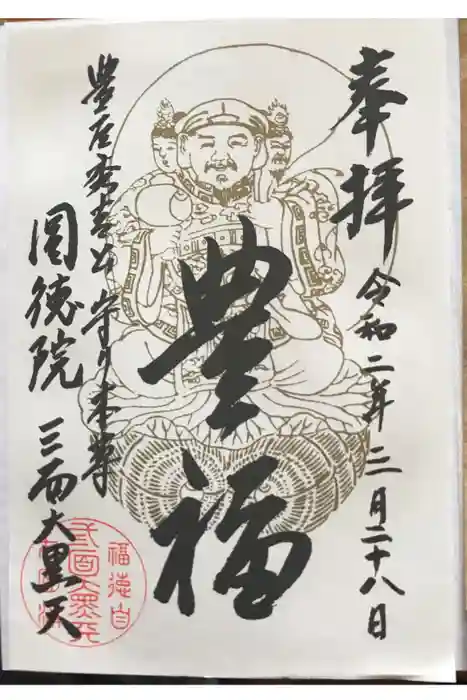 奉拝
令和二年三月二十八日
豊福
豊臣秀吉公 守り本尊
圓徳院 三面大黒天